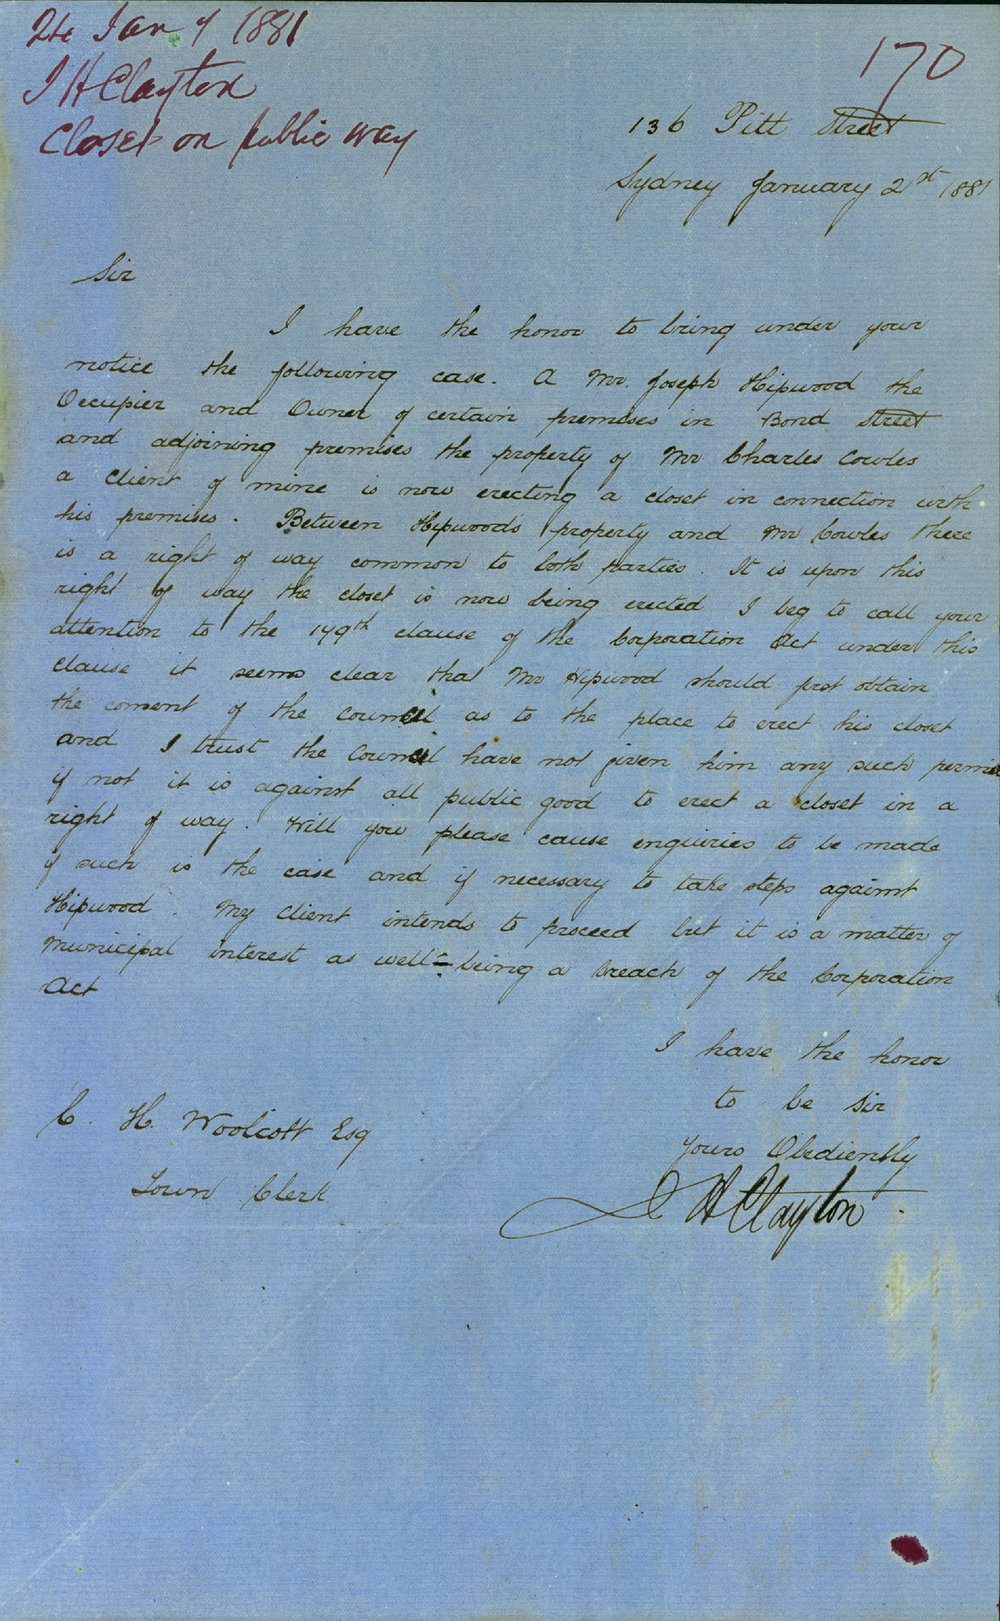 24 Jany 1881
J H Clayton
Closet on public way
170
136 Pitt Street
Sydney January 21st 1881
Sir
I have the honor to bring under your
notice the following case. A Mr. Joseph Hipwood the
Occupier and Owner of certain premises in Bond Street
and adjoining premises the property of Mr Charles Cowles
a Client of mine is now erecting a closet in connection with
his premises. Between Hipwood's property and Mr Cowles there
is a right of way common to both parties. It is upon this
right of way the closet is now being erected I beg to call your
attention to the 149th clause of the Corporation Act under this
clause it seems clear that Mr Hipwood should first obtain
the consent of the Council as to the place to erect his closet
and I trust the Council have not given him any such permis
if not it is against all public good to erect a closet in a
right of way. Will you please cause enquiries to be made
if such is the case and if necessary to take steps against
Hipwood. My Client intends to proceed but it is a matter of
Municipal interest as well - being a breach of the Corporation
Act
I have the honor
to be Sir
Yours Obediently
J H Clayton.
C. H. Woolcott Esq
Town Clerk